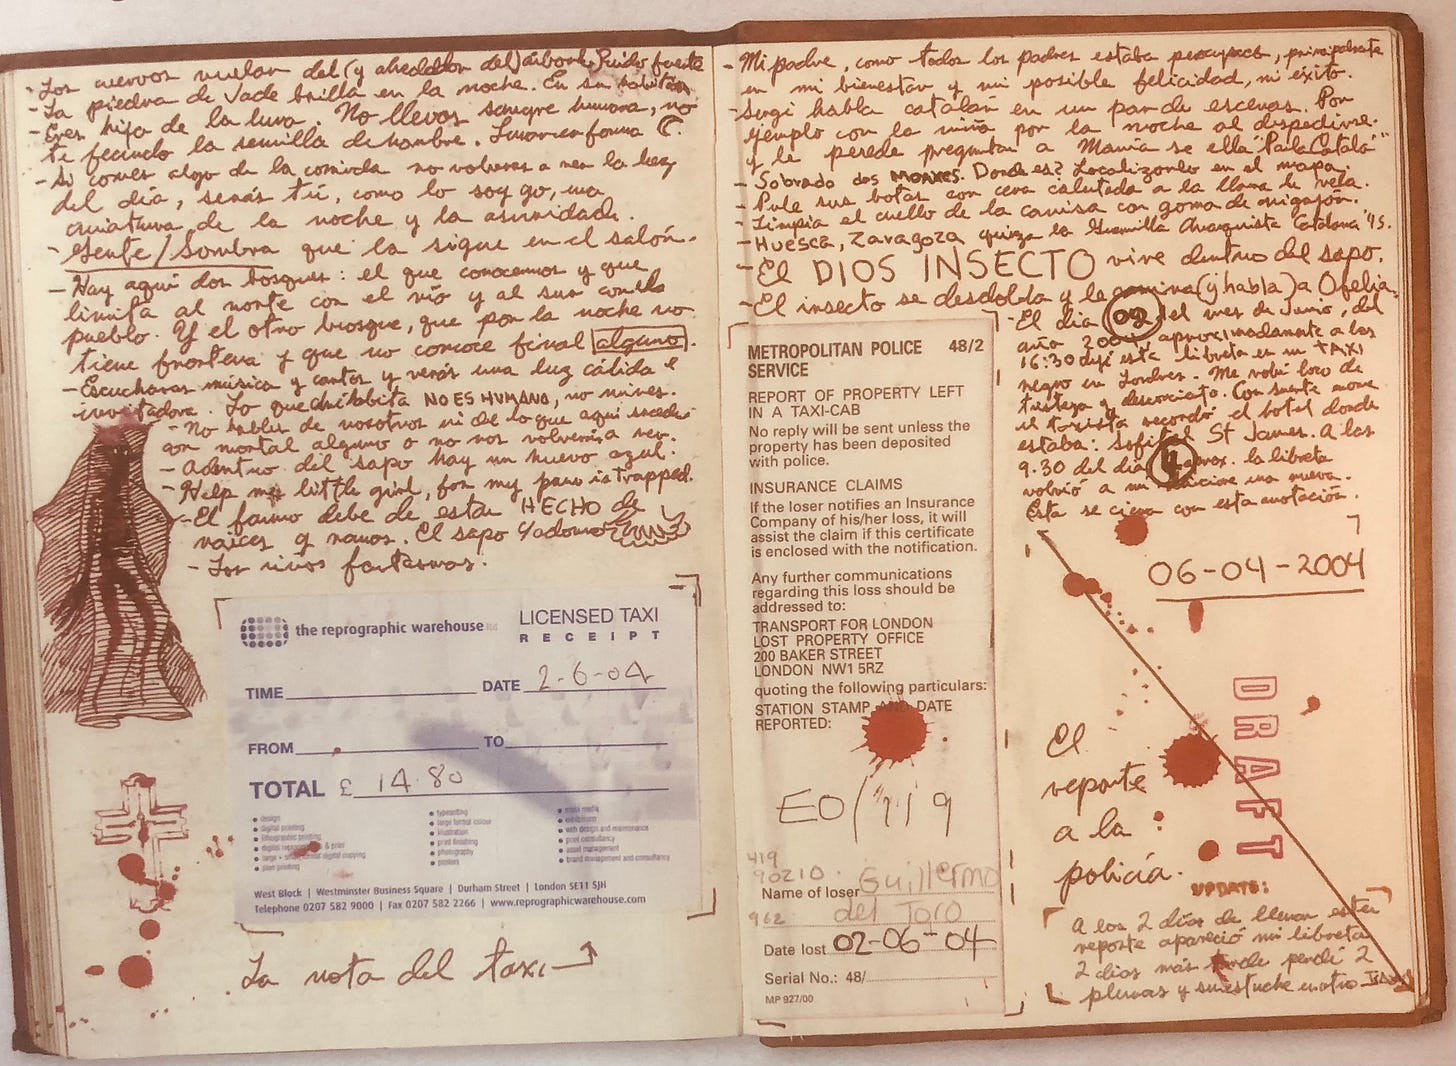 - Los cuervos vuelan del (y alrededor del) árbol. Ruido fuerte
- La piedra de Jade brilla en la noche. En su
- Eres hija de la luna. No llevas sangre humana, no
te fecundo la semilla de hombre. Lunar en forma C.
- Si comes algo de la comida no volveras a ver la luz
del día, serás tú, como lo soy yo, una
criatura de la noche y la
- Gente/Sombra que la sigue en el salón.
- Hay aquí dos bosques: el que conocemos y que
limita al norte con el río y al sur con el
pueblo. Y el otro bosque, que por la noche no
tiene frontera y que no conoce final alguno.
- Escucharas música y cantos y verás una luz cálida e
invitadora. Lo que ahí habita NO ES HUMANO, no mires.
- No hables de nosotros ni de lo que aquí sucede
con mortal alguno o no nos volverás a ver.
- Adentro del sapo hay un huevo azul.
- Help me little girl, for my paw is trapped.
- El fauno debe de estar HECHO de
raíces y ramas. El sapo
- Los niños fantasmas.
the reprographic warehouse ltd
LICENSED TAXI
RECEIPT
TIME
DATE 2-6-04
FROM
TO
TOTAL £ 14.80
• design
• digital printing
• lithographic printing
• plan printing
• typesetting
• large format colour
• illustration
• print finishing
• photography
• posters
• exhibitions
• web design and maintenance
• print consultancy
• asset management
• brand management and consultancy
West Block | Westminster Business Square | Durham Street | London SE11 5JH
Telephone 0207 582 9000 | Fax 0207 582 2266 | www.reprographicwarehouse.com
La nota del taxi
- Mi padre, como todos los padres estaba
en mi bienestar y mi posible felicidad, mi éxito.
- Sergi habla catalán en un par de escenas. Por
ejemplo con la niña por la noche al despedirse.
y le puede preguntar a Mamá se ella "Parla Català"
- Sobrado dos MONXES. Donde es? Localizarlo en el mapa.
- Pule sus botas con cera calentada a la llama de vela.
- Limpia el cuello de la camisa con goma de migajón.
- Huesca, Zaragoza quiza la Guerrilla Anarquista Catalana '45.
- El DIOS INSECTO vive dentro del sapo.
- El insecto se desdobla y le camina (y habla) a Ofelia.
- El día 02 del mes de Junio, del
año 2004, aproximadamente a las
16:30 dejé esta libreta en un TAXI
negro en Londres. Me volví loco de
tristeza y desconcierto. Con suerte
el taxista recordó el hotel donde
estaba: Sofitel St James. A las
9.30 del día 4 aprox. la libreta
volvió a mi
Esta se cierra con esta anotación.
06-04-2004
METROPOLITAN POLICE SERVICE 48/2
REPORT OF PROPERTY LEFT
IN A TAXI-CAB
No reply will be sent unless the
property has been deposited
with police.
INSURANCE CLAIMS
If the loser notifies an Insurance
Company of his/her loss, it will
assist the claim if this certificate
is enclosed with the notification.
Any further communications
regarding this loss should be
addressed to:
TRANSPORT FOR LONDON
LOST PROPERTY OFFICE
200 BAKER STREET
LONDON NW1 5RZ
quoting the following particulars:
STATION STAMP AND DATE
REPORTED:
EO/719
419
90210
Name of loser Guillermo
962 del Toro
Date lost 02-06-04
Serial No.: 48/
MP 927/00
El
reporte
a la
policía.
DRAFT
UPDATE:
A los 2 días de llenar este
reporte apareció mi libreta
2 días más tarde perdí 2
plumas y su estuche en otro TAXI